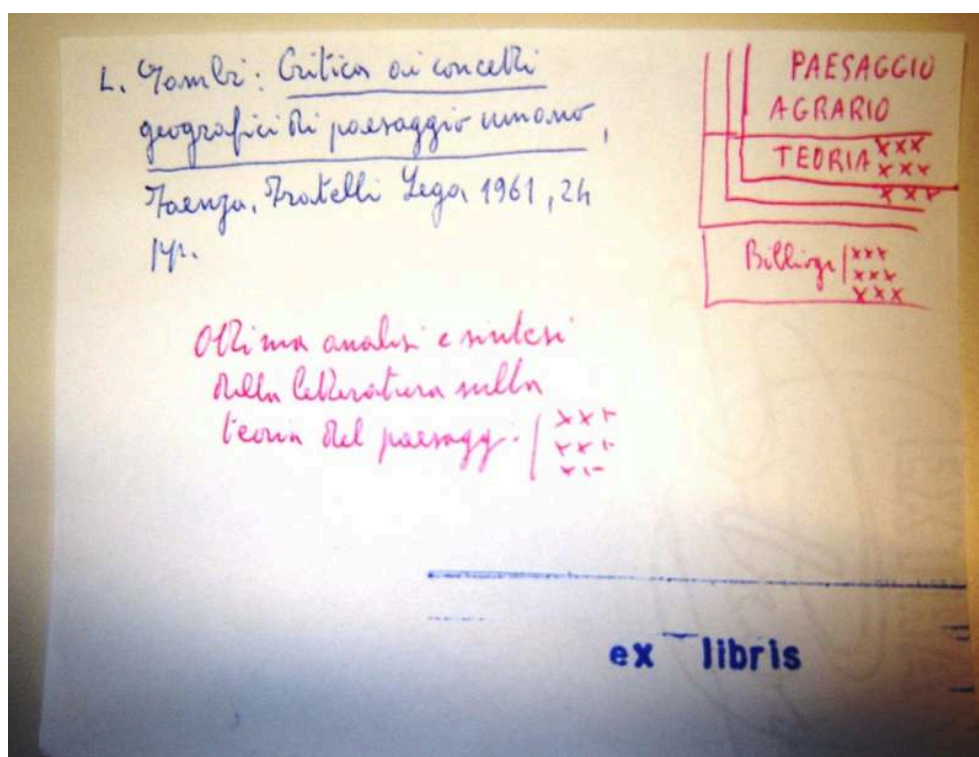 L. Gambi: Critica ai concetti
geografici di paesaggio umano,
Faenza, Fratelli Lega 1961, 24
pp.
PAESAGGIO
AGRARIO
TEORIA xxx
xxx
xxx
xxx
xxx
xxx
Ottima analisi e sintesi
della letteratura sulla
teoria del paesagg. xxx
xxx
ex libris